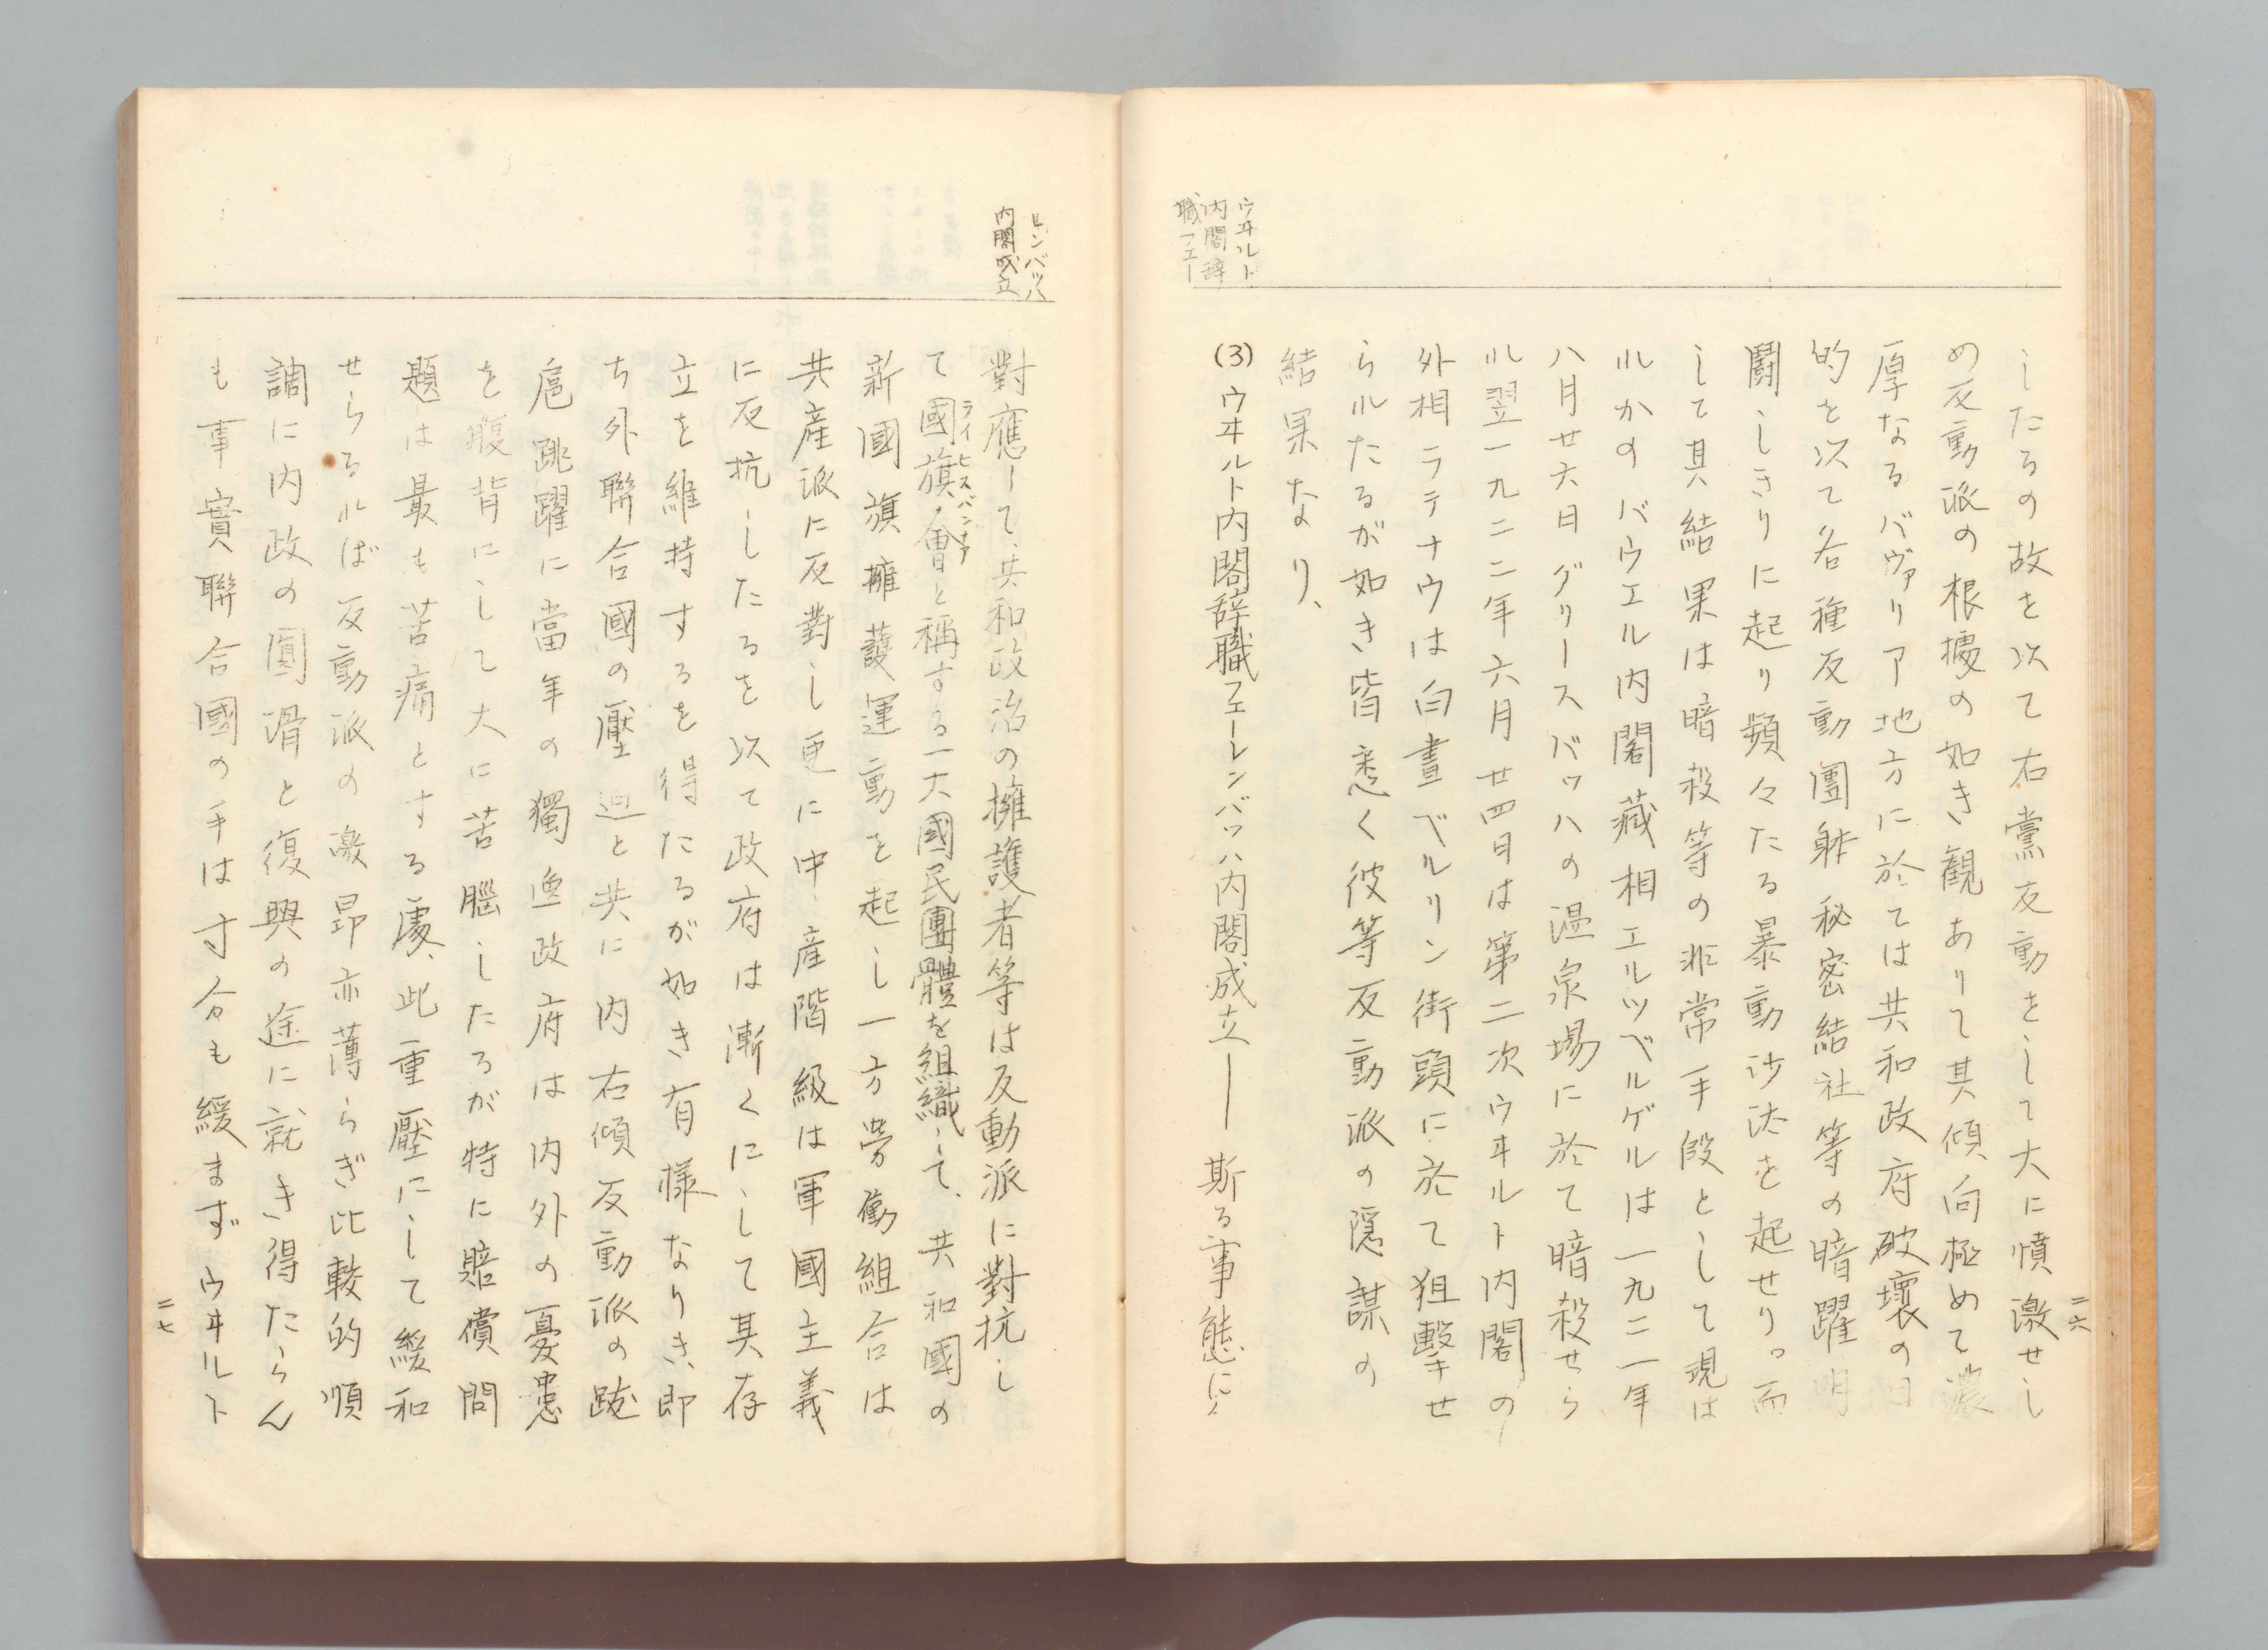 二六
したるの故を以て右黨反動をして大に憤激せし
め反動派の根據の如き観ありて其傾向極めて濃
厚なるバヴァリア地方に於ては共和政府破壊の目
的を以て各種反動團躰秘密結社等の暗躍明
闘しきりに起り頻々たる暴動沙汰を起せり。而
して其結果は暗殺等の非常手段として現は
ルかのバウエル内閣藏相エルツベルゲルは一九二一年
八月廿六日グリースバッハの温泉場に於て暗殺せら
ル翌一九二二年六月廿四日は第二次ウヰルト内閣の
外相ラテナウは白晝ベルリン街頭に於て狙擊せ
らルたるが如き皆悉く彼等反動派の隠謀の
結果なり、
ウヰルト
内閣辞
職フェー
(3)ウヰルト内閣辞職フェーレンバッハ内閣成立――斯る事態に
レンバッハ
内閣成立
對應して、共和政治の擁護者等は反動派に對抗し
て國旗會と稱する一大國民團體を組織して、共和國の
ライヒスバンナー
新國旗擁護運動を起し一方勞働組合は
共産派に反對し更に中産階級は軍國主義
に反抗したるを以て政府は漸くにして其存
立を維持するを得たるが如き有様なりき、即
ち外聯合國の壓迫と共に内右傾反動派の跋
扈跳躍に當年の獨逸政府は内外の憂患
を腹背にして大に苦腦したるが特に賠償問
題は最も苦痛とする處、此重壓にして緩和
せらるルば反動派の激昻亦薄らぎ比較的順
調に内政の圓滑と復興の途に就き得たらん
も事實聯合國の手は寸分も緩まずウヰルト
二七